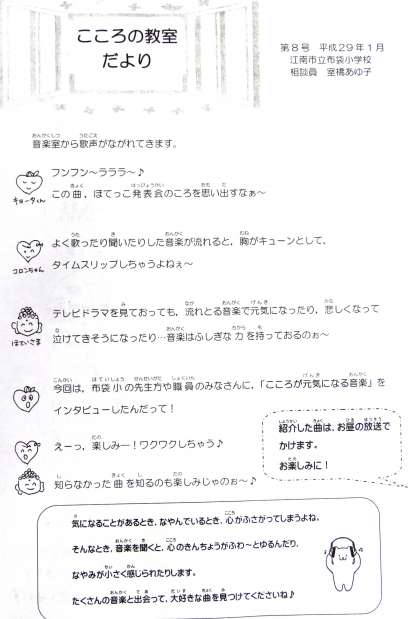 こころの教室
だより
第8号 平成29年1月
江南市立布袋小学校
相談員 室橋あゆ子
音楽室から歌声がながれてきます。
フンフン～ラララ～♪
この曲，ほてっこ発表会のころを思い出すなぁ～
キョータくん
よく歌ったり聞いたりした音楽が流れると，胸がキューンとして，
タイムスリップしちゃうよねぇ～
コロンちゃん
テレビドラマを見ておっても，流れとる音楽で元気になったり，悲しくなって
泣けてきそうになったり…音楽はふしぎな力を持っておるのぉ～
ほていさま
今回は，布袋小の先生方や職員のみなさんに，「こころが元気になる音楽」を
インタビューしたんだって！
えーっ，楽しみ―！ワクワクしちゃう♪
知らなかった曲を知るのも楽しみじゃのぉ～♪
紹介した曲は，お昼の放送で
かけます。
お楽しみに！
気になることがあるとき，なやんでいるとき，心がふさがってしまうよね。
そんなとき，音楽を聞くと，心のきんちょうがふわ～とゆるんだり，
なやみが小さく感じられたりします。
たくさんの音楽と出会って，大好きな曲を見つけてくださいね♪